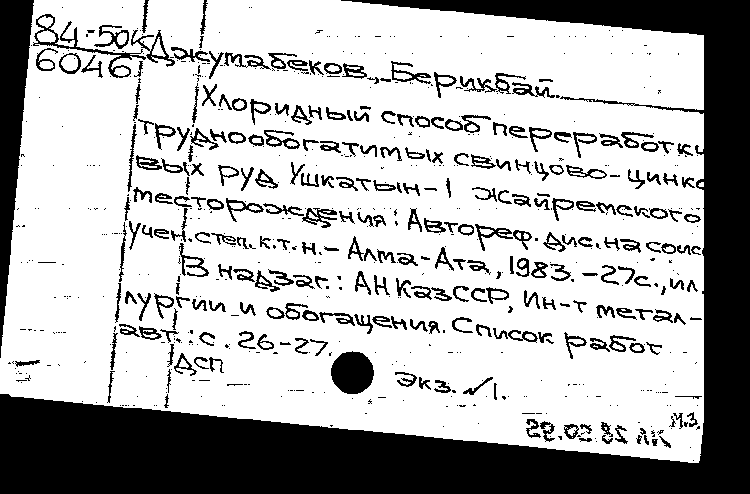 84-50к
6046
Джумабеков, Берикбай.
Хлоридный способ переработки
труднообогатимых свинцово-цинко
вых руд Ушкатын-1 Жайремского
месторождения: Автореф. дис. на соиск
учен. степ. к.т.н. - Алма-Ата, 1983. - 27с., ил.
В надзаг.: АН КазССР, Ин-т метал-
лургии и обогащения. Список работ
авт.: с. 26-27.
ДСП
Экз. №1.
М.З.